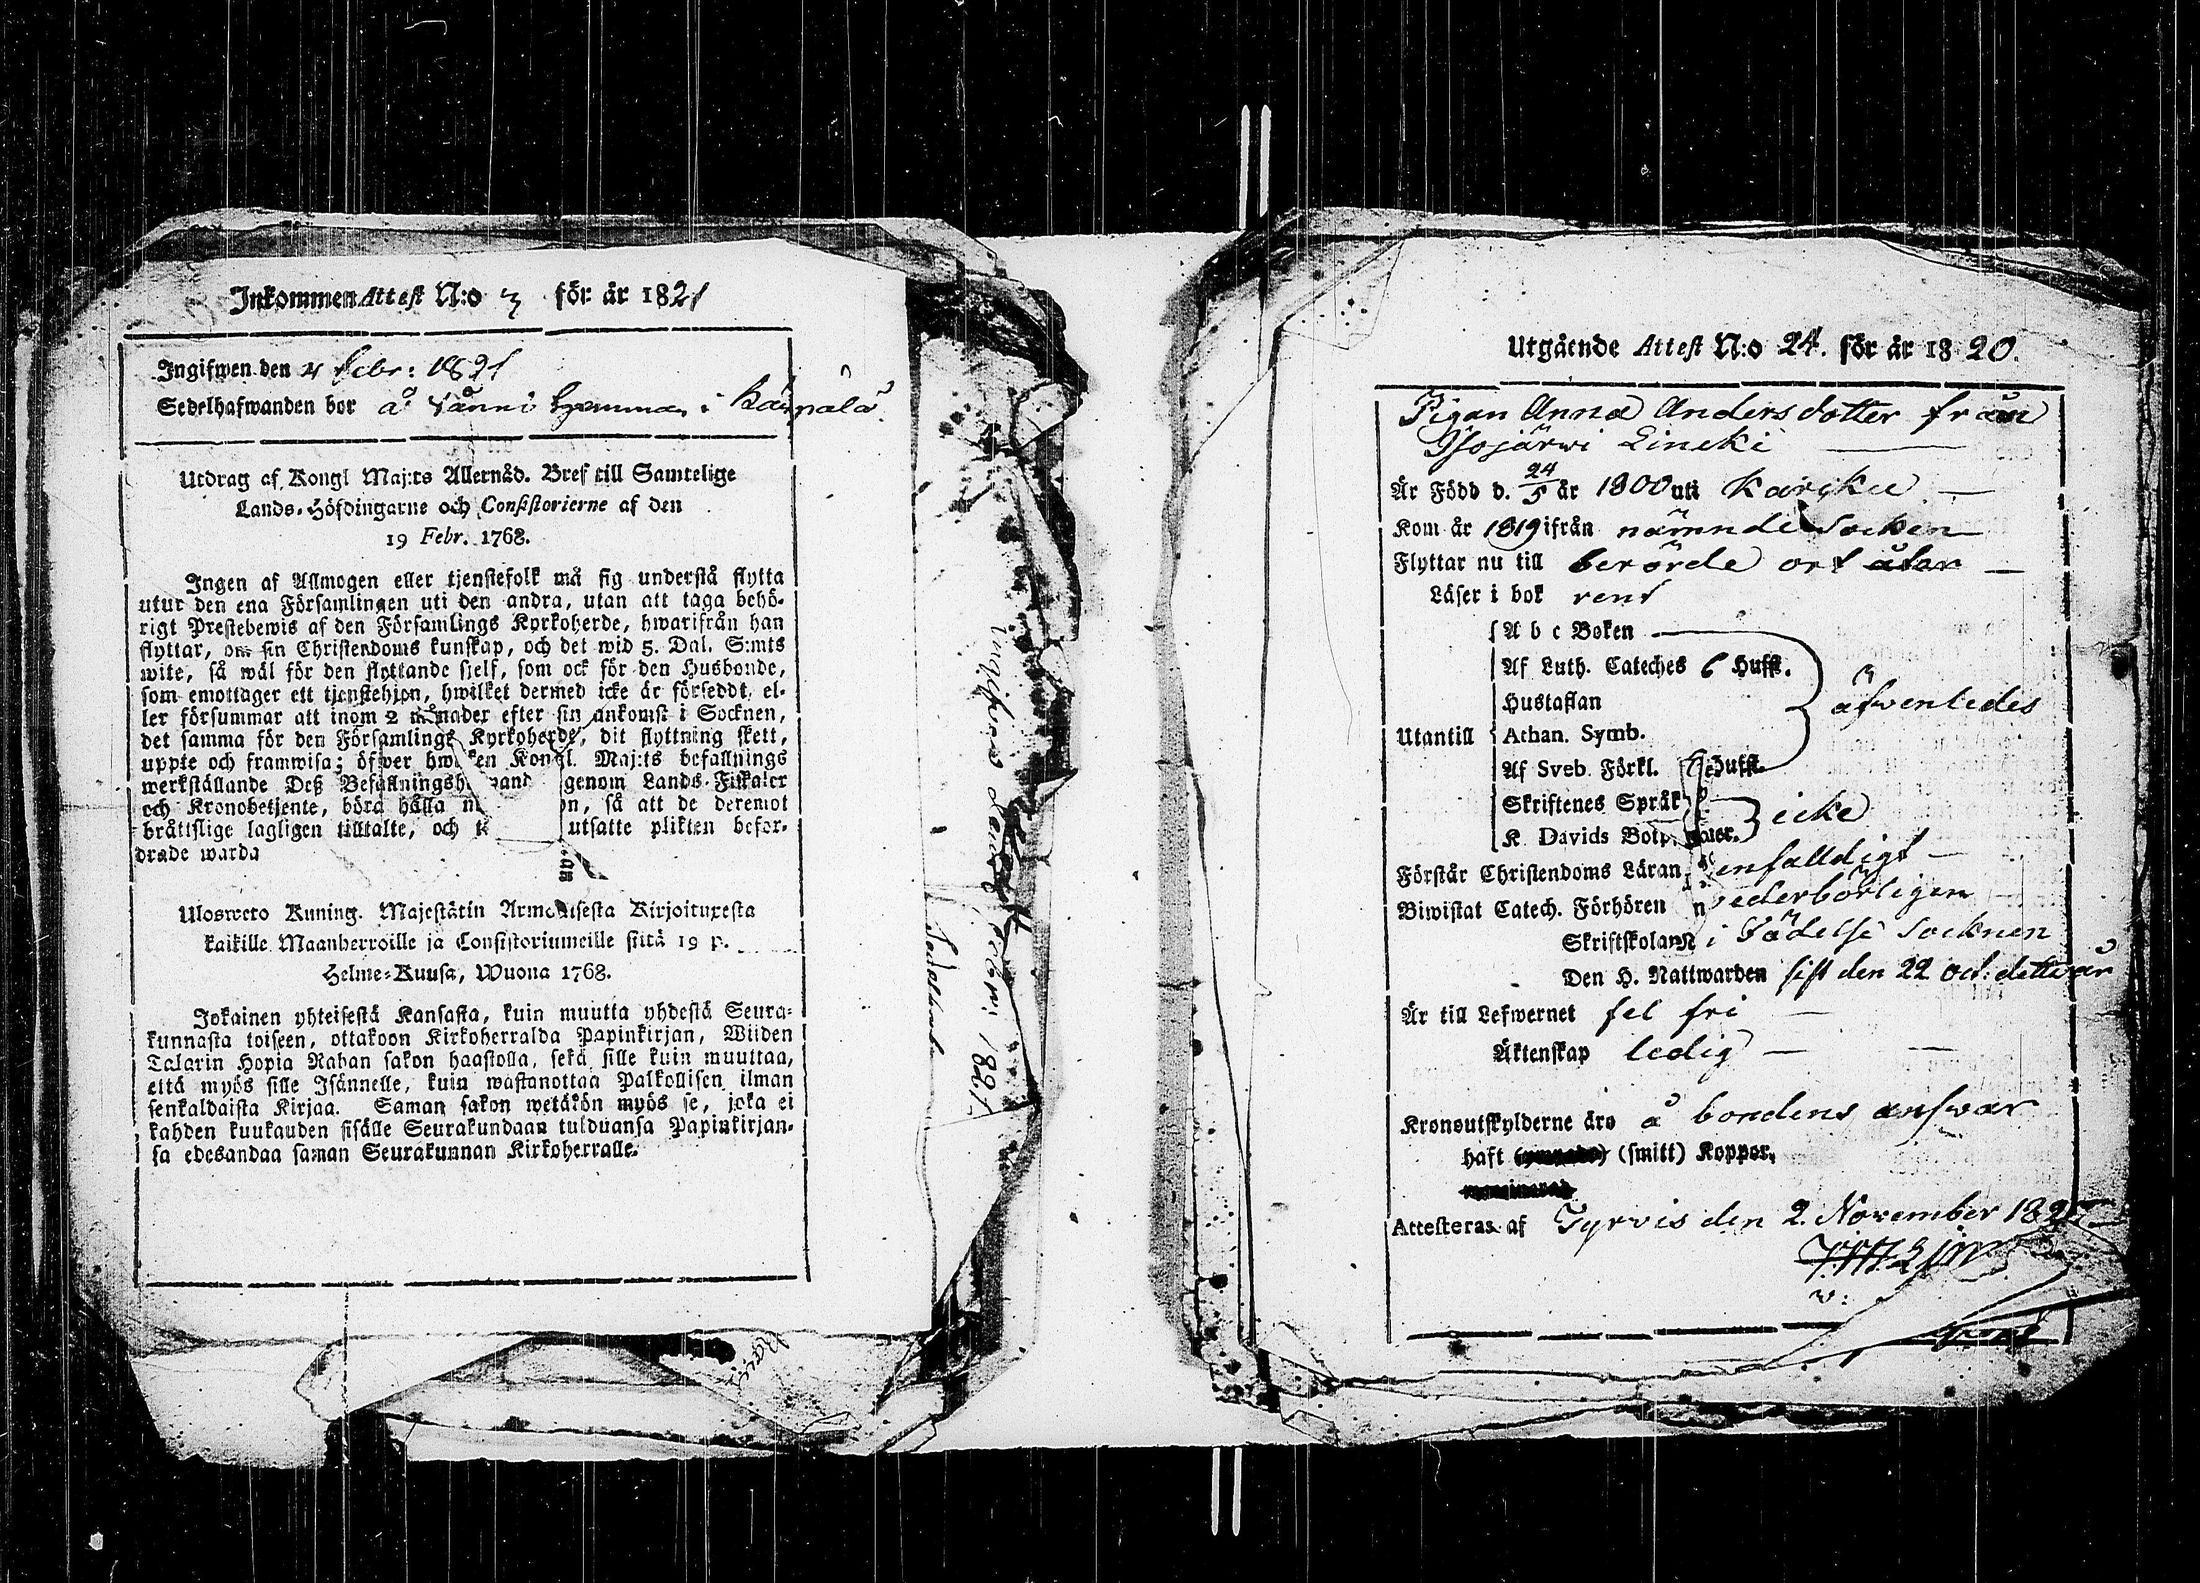 Inkommen Attest N:o 3 för år 1821
Ingifwen den 4 Febr: 1821
Sedelhafwanden bor å Vänni hemman i Kärpälä
Utdrag af Kongl Maj:ts Allernåd. Bref till Samtelige
Lands-Höfdingarne och Consistorierne af den
19 Febr. 1768.
Ingen af Allmogen eller tjenstefolk må sig understå flytta
utur den ena Församlingen uti den andra, utan att taga behö-
rigt Prestebewis af den Församlings Kyrkoherde, hwarifrån han
flyttar, om sin Christendoms kunskap, och det wid 5. Dal. S:mts
wite, så wäl för den flyttande sielf, som ock för den Husbonde,
som emottager ett tjenstehjon, hwilket dermed icke är försedt, el-
ler försummar att inom 2 månader efter sin ankomst i Socknen,
det samma för den Församlings Kyrkoherde, dit flyttning skett,
uppte och framwisa; öfwer hwilken Kongl. Maj:ts befallnings
werkställande Deß Befallningsh wand genom Lands-Fiskaler
och Kronobetjente, böra hålla n on, så att de deremot
bråttslige lagligen tilltalte, och utsatte plikten befor-
drade warda
Ulosweto Kuning. Majestätin Armollisesta Kirjoituxesta
kaikille Maanherroille ja Consistoriumeille siitä 19 p.
Helme-Kuusa, Wuona 1768.
Jokainen yhteisestä Kansasta, kuin muutta yhdestä Seura-
kunnasta toiseen, ottakoon Kirkoherralda Papinkirjan, Wiiden
Talarin Hopia Rahan sakon haastolla, sekä sille kuin muuttaa,
että myös sille Isännelle, kuin wastanottaa Palkollisen ilman
senkaldaista Kirjaa. Saman sakon wetäkön myös se, joka ei
kahden kuukauden sisälle Seurakundaan tulduansa Papinkirjan-
sa edesandaa saman Seurakunnan Kirkoherralle.
ingifwes den 1821
Utgående Attest N:o 24. för år 1820.
Pigan Anna Andersdotter från
Isojärwi Lineki
Är Född d. 24/5 år 1800 uti Karkku
Kom år 1819 ifrån nämnde Socken
Flyttar nu till berörde ort åter
Läser i bok rent
A b c Boken
Af Luth. Cateches 6 Hufst.
Hustaflan
äfwenledes
Utantill Athan. Symb.
Af Sveb. Förkl. Hufst.
Skriftenes Språk
icke
K. Davids Botpsalmer.
Förstår Christendoms Läran enfalldigt
Biwistat Catech. Förhören wederbörligen
Skriftskolan i Födelse Socknen
Den H. Nattwarden sist den 22 oct: detta år
Är till Lefwernet fel fri
Äktenskap ledig
Kronoutskylderne äro å bondens answar
haft (smitt) Koppor.
Attesteras af Tyrvis den 2. November 1820
v: